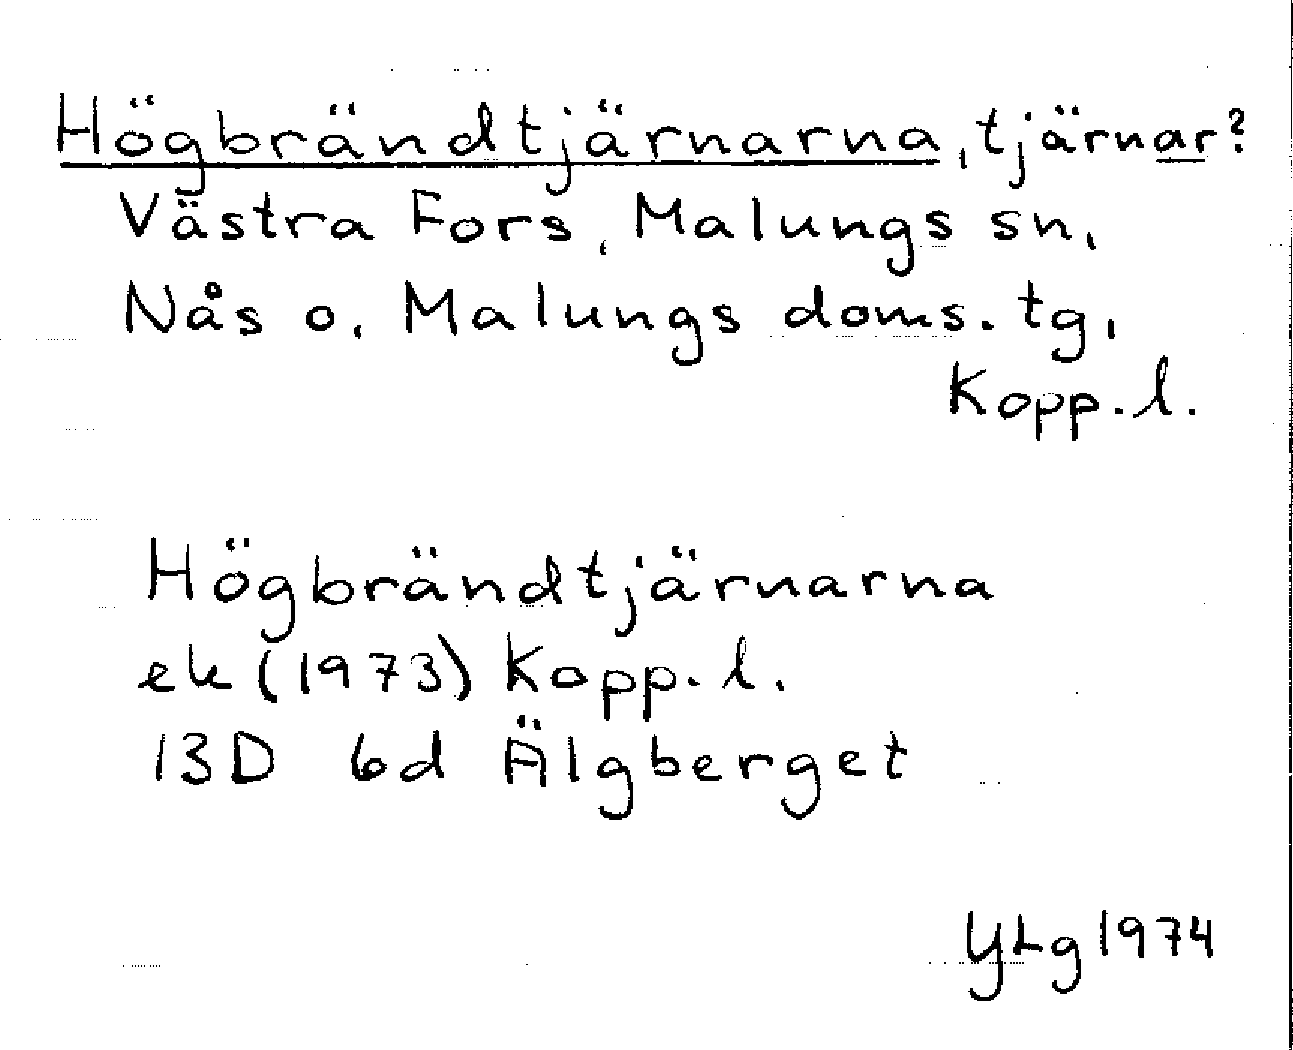 Högbrändtjärnarna, tjärnar?
Västra Fors, Malungs sn,
Nås o. Malungs doms. tg,
Kopp. l.
Högbrändtjärnarna
ek (1973) Kopp. l.
13D 6d Älgberget
YLg 1974